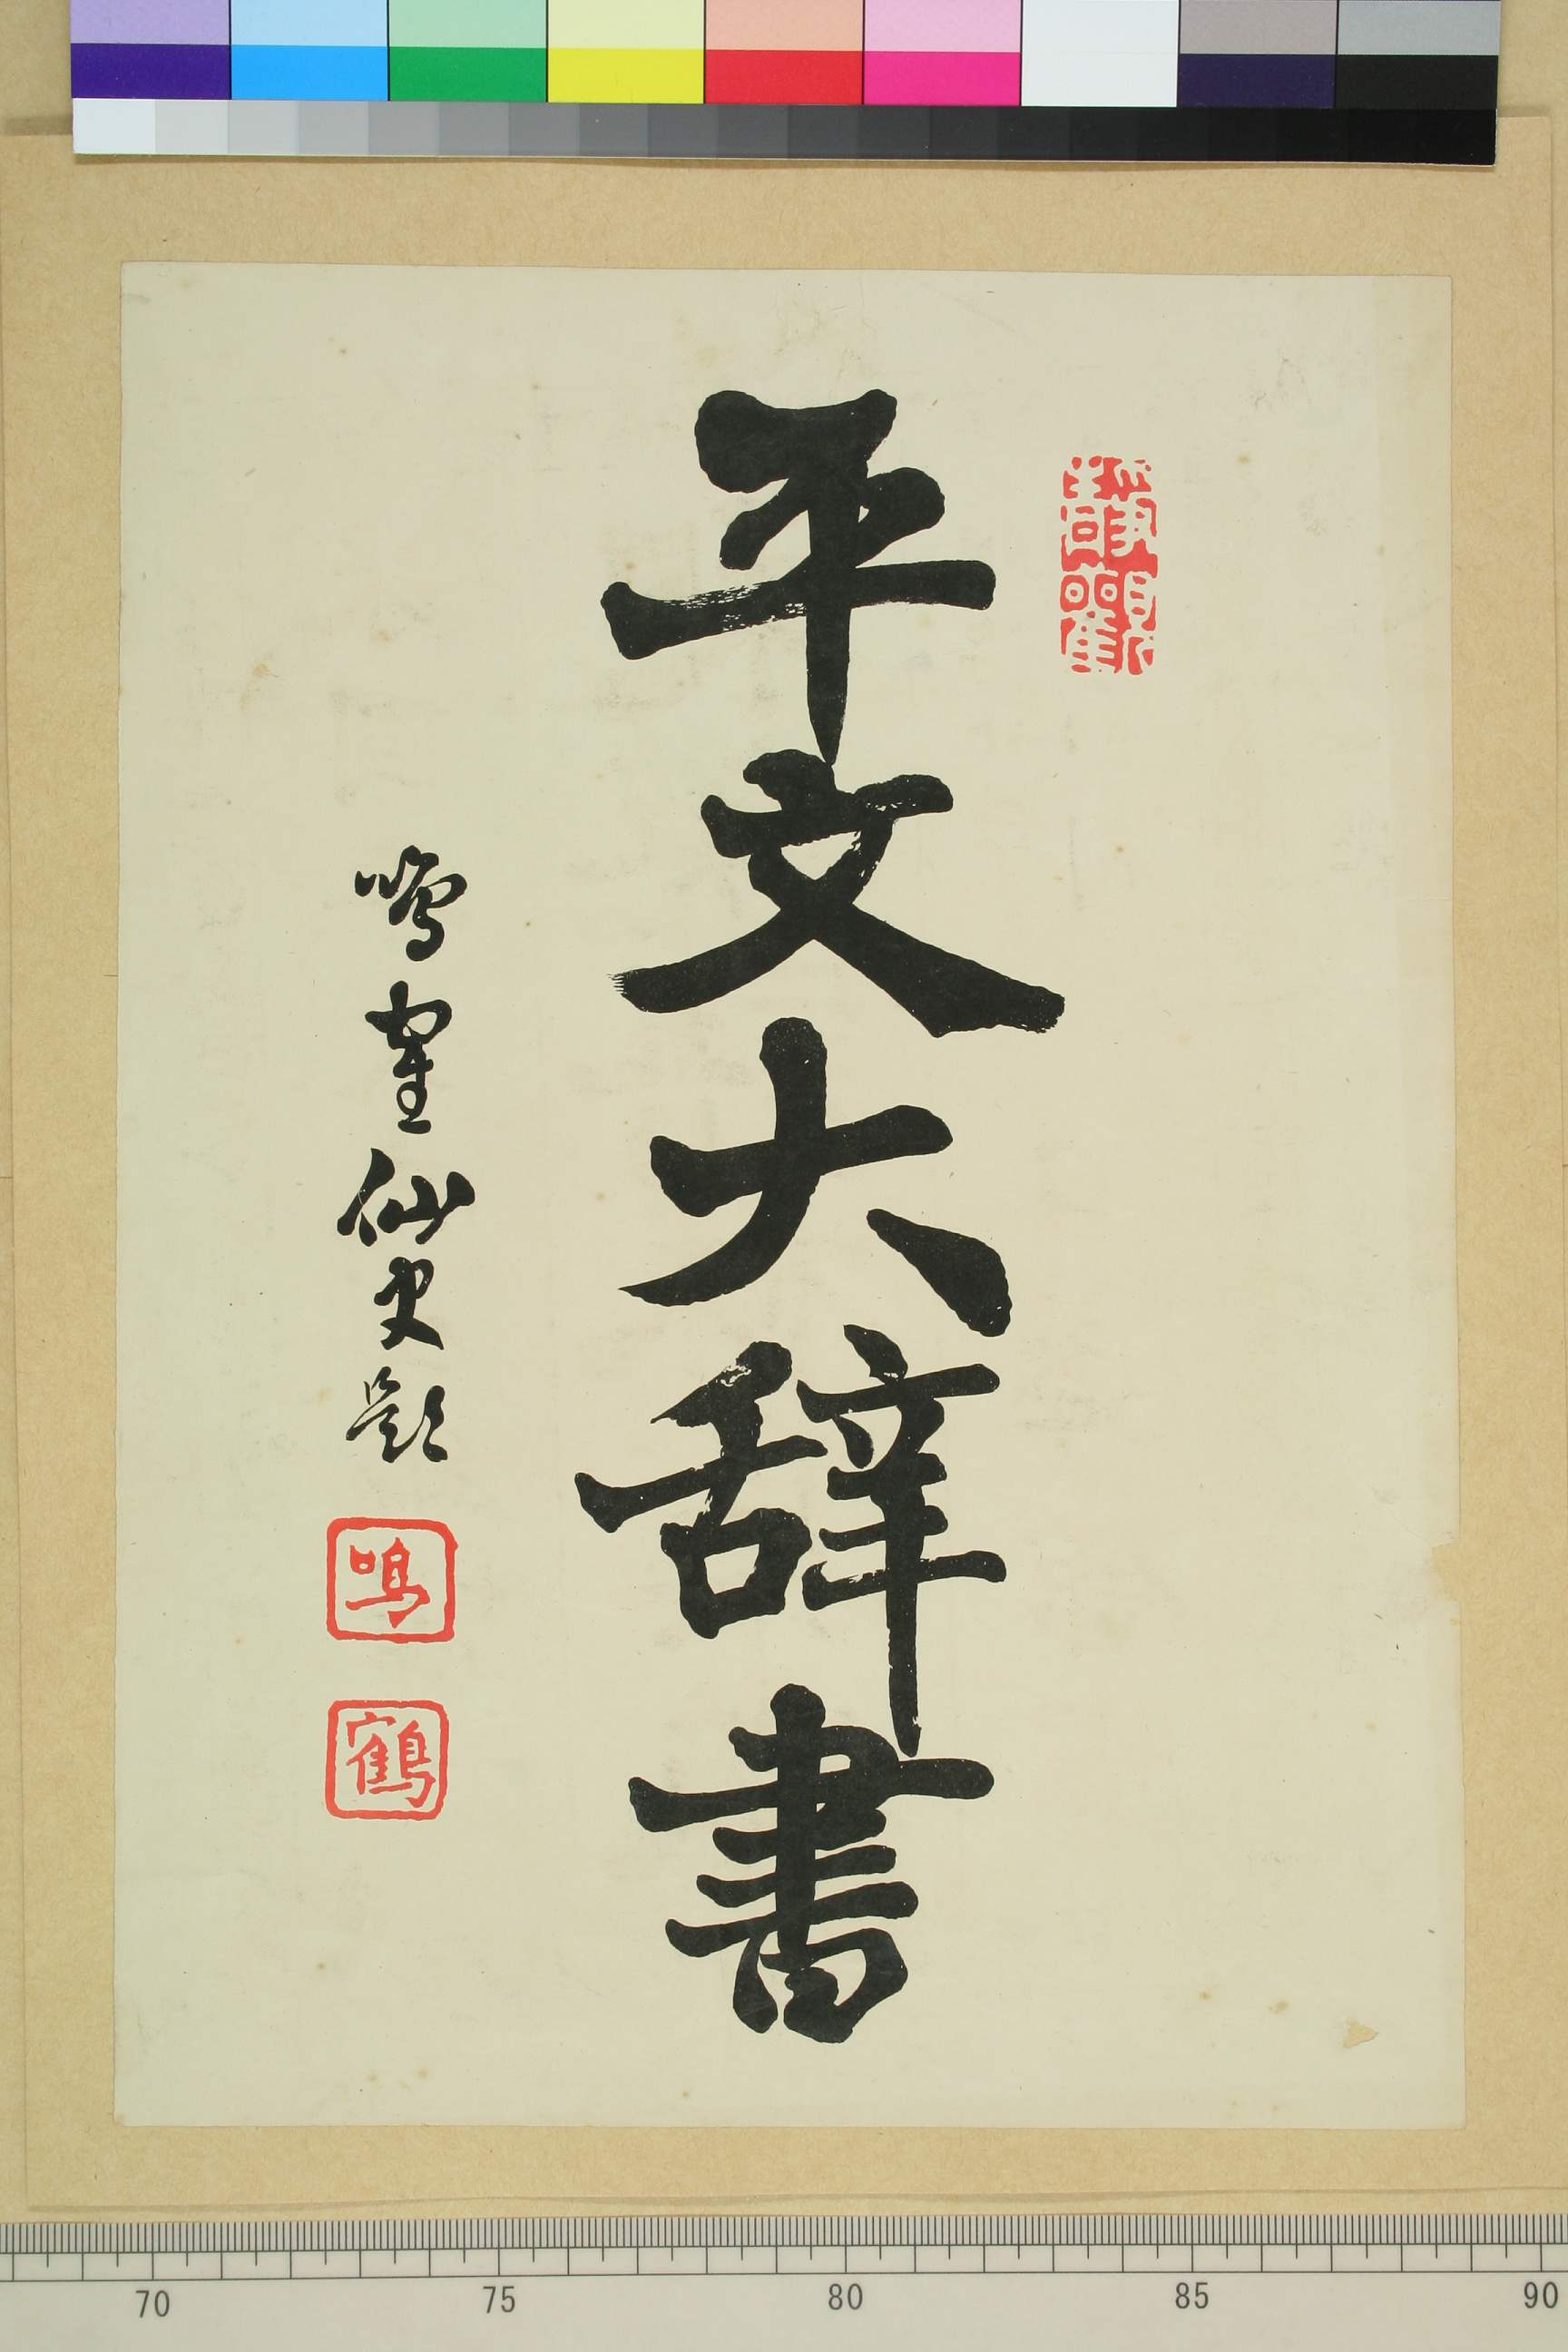 平文大辞書
鳴隺仙史題
鳴
鶴
70 75 80 85 90